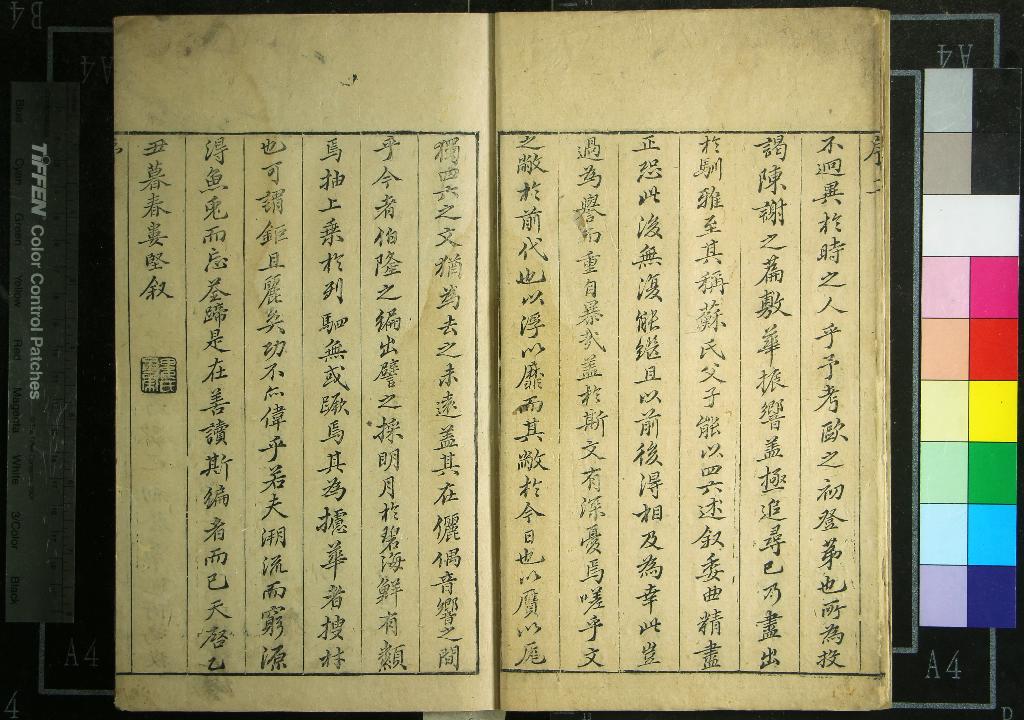 不迥異於時之人乎予考歐之初登第也所為投
謁陳謝之篇敷華振響蓋極追尋已乃盡出
於馴雅至其稱蘇氏父子能以四六述叙委曲精盡
正恐此後無復能繼且以前後得相及為幸此豈
過為譽而重自暴哉蓋於斯文有深憂焉嗟乎文
之敝於前代也以浮以靡而其敝於今日也以贗以
獨四六之文猶為去之未遠蓋其在儷偶音響之間
乎今者伯隆之編出譬之採明月於碧海鮮有纇
焉抽上乘於列駟無或蹶焉其為攄華者搜材
也可謂鉅且麗矣功不亦偉乎若夫溯流而窮源
得魚兎而忘筌蹄是在善讀斯編者而已天啓乙
丑暮春婁堅叙
TIFFEN Color Control Patches
Blue Cyan Green Yellow Red Magenta White 3/Color Black
A4
A4
A4
A4
B4